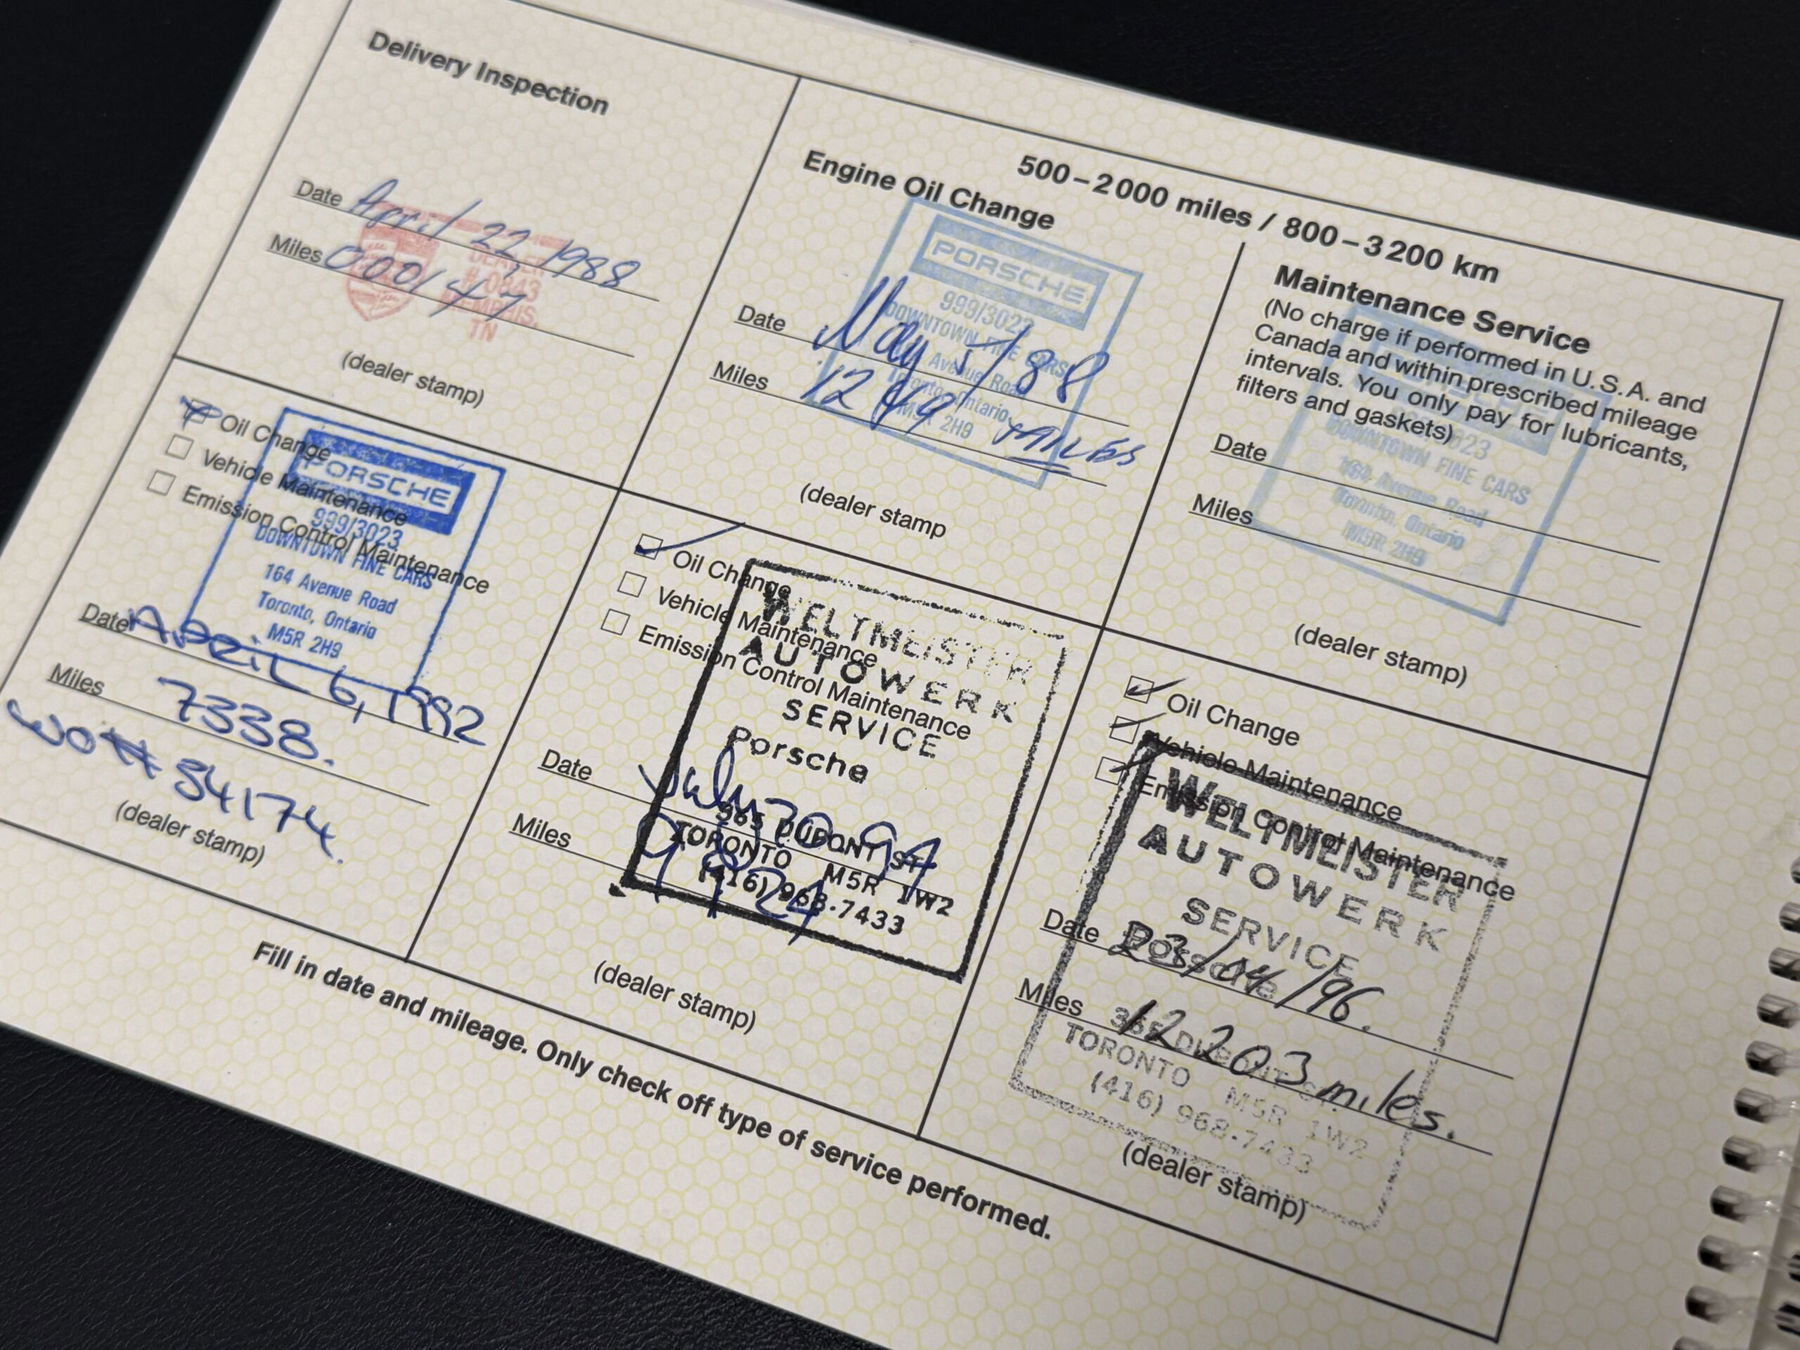 Delivery Inspection
Date April 22, 1988
Miles 000147
DEALER
#0343
MEMPHIS,
TN
(dealer stamp)
500–2000 miles / 800–3200 km
Engine Oil Change
PORSCHE
999/3023
DOWNTOWN FINE CARS
Avenue Road
Toronto, Ontario
M5R 2H9
Date May 5/88
Miles 1249 MILES
(dealer stamp
Maintenance Service
(No charge if performed in U.S.A. and
Canada and within prescribed mileage
intervals. You only pay for lubricants,
filters and gaskets)
DOWNTOWN FINE CARS
164 Avenue Road
Toronto, Ontario
M5R 2H9
Date
Miles
(dealer stamp)
Oil Change
Vehicle Maintenance
Emission Control Maintenance
PORSCHE
999/3023
DOWNTOWN FINE CARS
164 Avenue Road
Toronto, Ontario
M5R 2H9
Date April 6, 1992
Miles 7338.
WO# 34174.
(dealer stamp)
Oil Change
Vehicle Maintenance
Emission Control Maintenance
WELTMEISTER
AUTOWERK
SERVICE
Porsche
365 DUPONT ST.
TORONTO M5R 1W2
(416) 968-7433
Date July 94
Miles 9824
(dealer stamp)
Oil Change
Vehicle Maintenance
Emission Control Maintenance
WELTMEISTER
AUTOWERK
SERVICE
Porsche
365 DUPONT ST.
TORONTO M5R 1W2
(416) 968-7433
Date 23/04/96.
Miles 12203 miles.
(dealer stamp)
Fill in date and mileage. Only check off type of service performed.